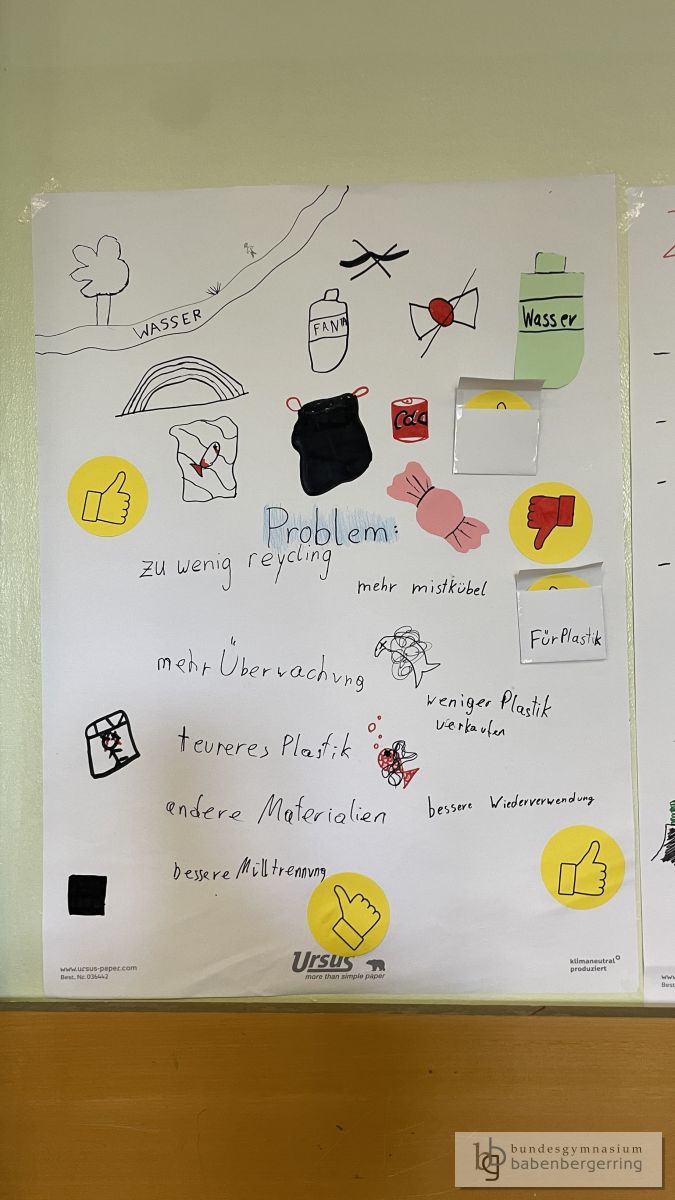 WASSER
FANTA
Wasser
Coca
Problem:
zu wenig reycling
mehr mistkübel
FürPlastik
mehr Überwachung
weniger Plastik
verkaufen
teureres Plastik
andere Materialien
bessere Wiederverwendung
bessere Mülltrennung
www.ursus-paper.com
Best. Nr. 036442
Ursus
more than simple paper
klimaneutral
produziert
bundesgymnasium
babenbergerring